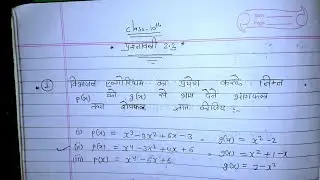 class-10th
प्रश्नावली 2.3
① विभाजन एल्गोरिथ्म का प्रयोग करके निम्न
p(x) को g(x) से भाग देने भागफल
तथा शेषफल ज्ञात कीजिए :-
(i) p(x) = x³-3x²+5x-3 g(x) = x²-2
(ii) p(x) = x⁴-3x²+4x+5 g(x) = x²+1-x
(iii) p(x) = x⁴-5x+6 g(x) = 2-x²